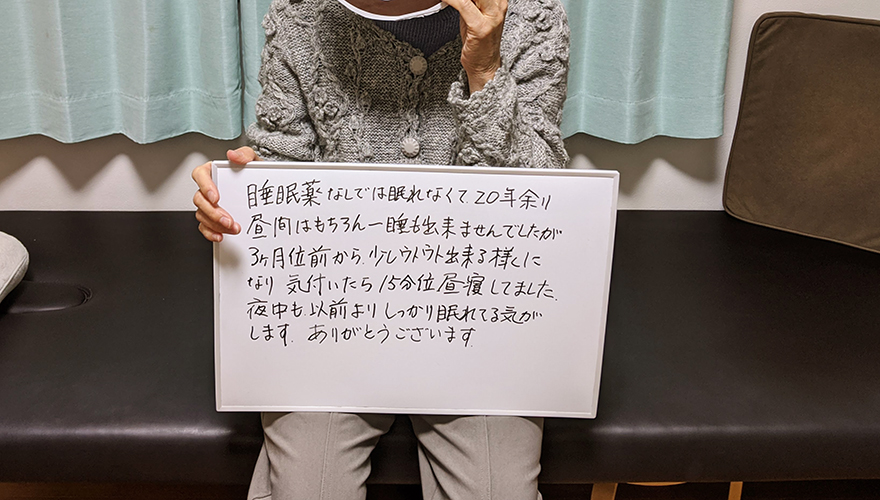 睡眠薬なしでは眠れなくて、20年余り
昼間はもちろん一睡も出来ませんでしたが
3ヶ月位前から、少しウトウト出来る様に
なり 気付いたら15分位昼寝してました。
夜中も、以前より しっかり眠れてる気が
します。ありがとうございます。